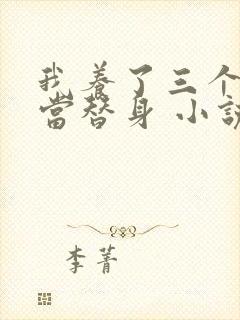 我养了三个
當替身 小說
李菁